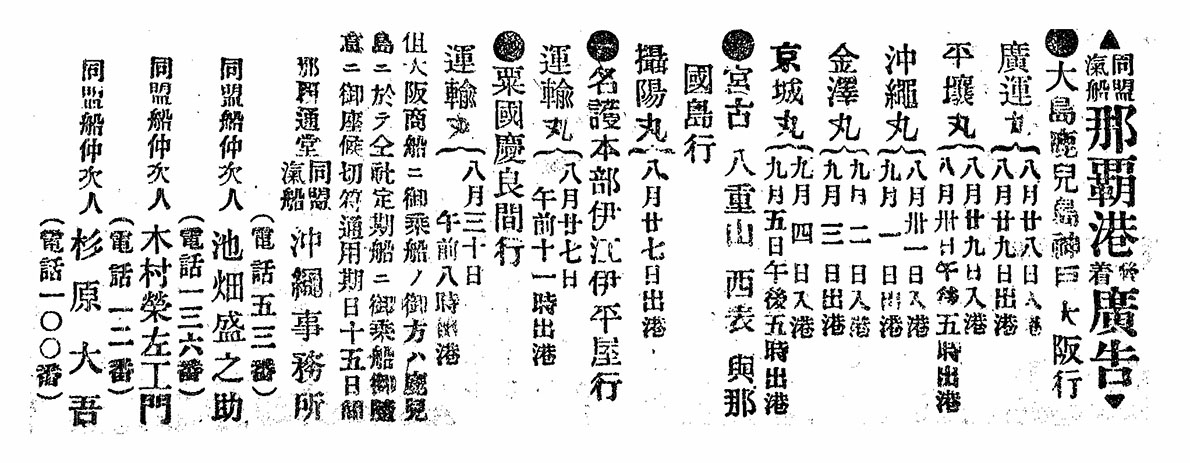 ▲同盟汽船那覇港發着廣告▼
●大島鹿兒島神戸大阪行
廣運丸
八月廿八日入港
八月廿九日出港
平壤丸
八月廿九日入港
八月卅日午後五時出港
沖繩丸
八月卅一日入港
九月一日出港
金澤丸
九月二日入港
九月三日出港
京城丸
九月四日入港
九月五日午後五時出港
●宮古 八重山 西表 與那
國島行
攝陽丸 八月廿七日出港
●名護本部伊江伊平屋行
運輸丸
八月廿七日
午前十一時出港
●粟國慶良間行
運輸丸
八月三十日
午前八時出港
但大阪商船ニ御乘船ノ御方ハ鹿兒
島ニ於テ仝社定期船ニ御乘船御隨
意ニ御座候切符通用期日十五日間
那覇通堂 同盟汽船 沖繩事務所
(電話五三番)
同盟船仲次人 池畑盛之助
(電話一三六番)
同盟船仲次人 木村榮左工門
(電話一二番)
同盟船仲次人 杉原大吾
(電話一〇〇番)